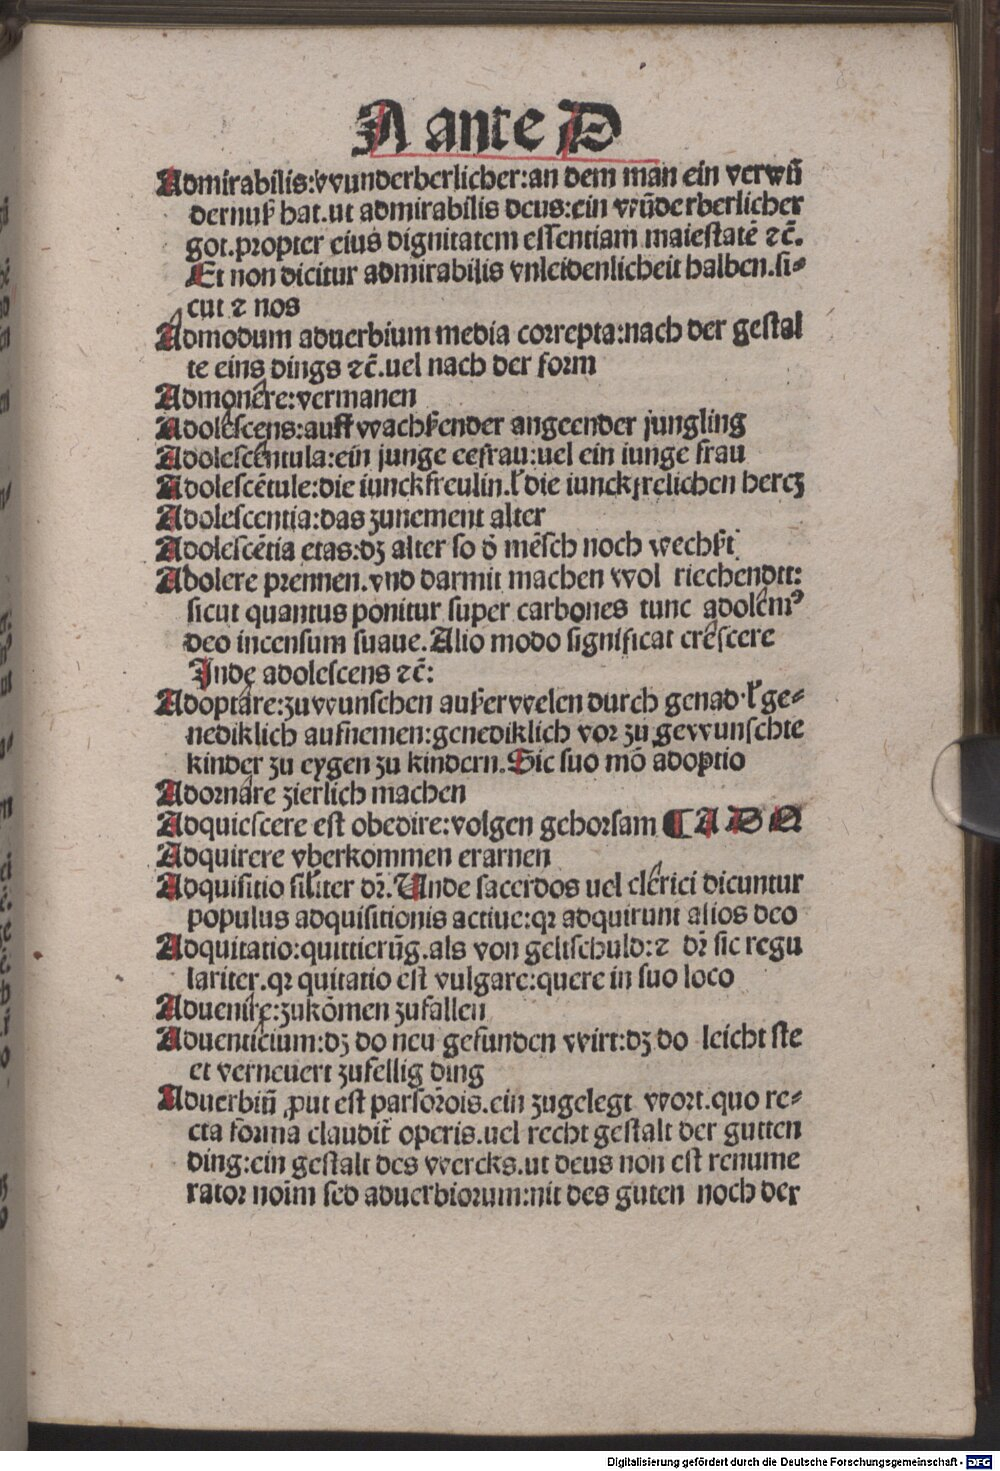 A ante D
Admirabilis:wunderberlicher:an dem man ein verwū
dernuß hat.ut admirabilis deus:ein wūderberlicher
got.propter eius dignitatem essentiam maiestatē ⁊c̄.
Et non dicitur admirabilis vnleidenlicheit halben.si⸗
cut ⁊ nos
Admodum aduerbium media correpta:nach der gestal
te eins dings ⁊c̄.uel nach der form
Admonere:vermanen
Adolescens:auff wachßender angeender jungling
Adolescentula:ein junge eefrau:uel ein iunge frau
Adolescētule:die iunckfreulin.ł die iunckfrelichen hercz
Adolescentia:das zunement alter
Adolescētia etas:dz alter so d̄ mēsch noch wechßt
Adolere prennen.vnd darmit machen wol riechendtt:
sicut quantus ponitur super carbones tunc adolemꝰ
deo incensum suaue.Alio modo significat crescere
Inde adolescens ⁊c̄:
Adoptare:zuwunschen außerwelen durch genad.ł ge⸗
nediklich aufnemen:genediklich vor zu gewunschte
kinder zu eygen zu kindern.Sic suo mō adoptio
Adornare zierlich machen
Adquiescere est obedire:volgen gehorsam ¶ A D Q
Adquirere vberkommen erarnen
Adquisitio siłiter dr̄.Unde sacerdos uel clerici dicuntur
populus adquisitionis actiue:qꝛ adquirunt alios deo
Adquitatio:quittierūg.als von geltschuld:⁊ dr̄ sic regu
lariter.qꝛ quitatio est vulgare:quere in suo loco
Aduenire:zukōmen zufallen
Aduenticium:dz do neu gefunden wirt:dz do leicht ste
et verneuert zufellig ding
Aduerbiū ꝓut est pars or̄ois.ein zugelegt wort.quo re⸗
cta forma claudit̄ operis.uel recht gestalt der gutten
ding:ein gestalt des wercks.ut deus non est renume
rator noīm sed aduerbiorum:nit des guten noch der
Digitalisierung gefördert durch die Deutsche Forschungsgemeinschaft - DFG